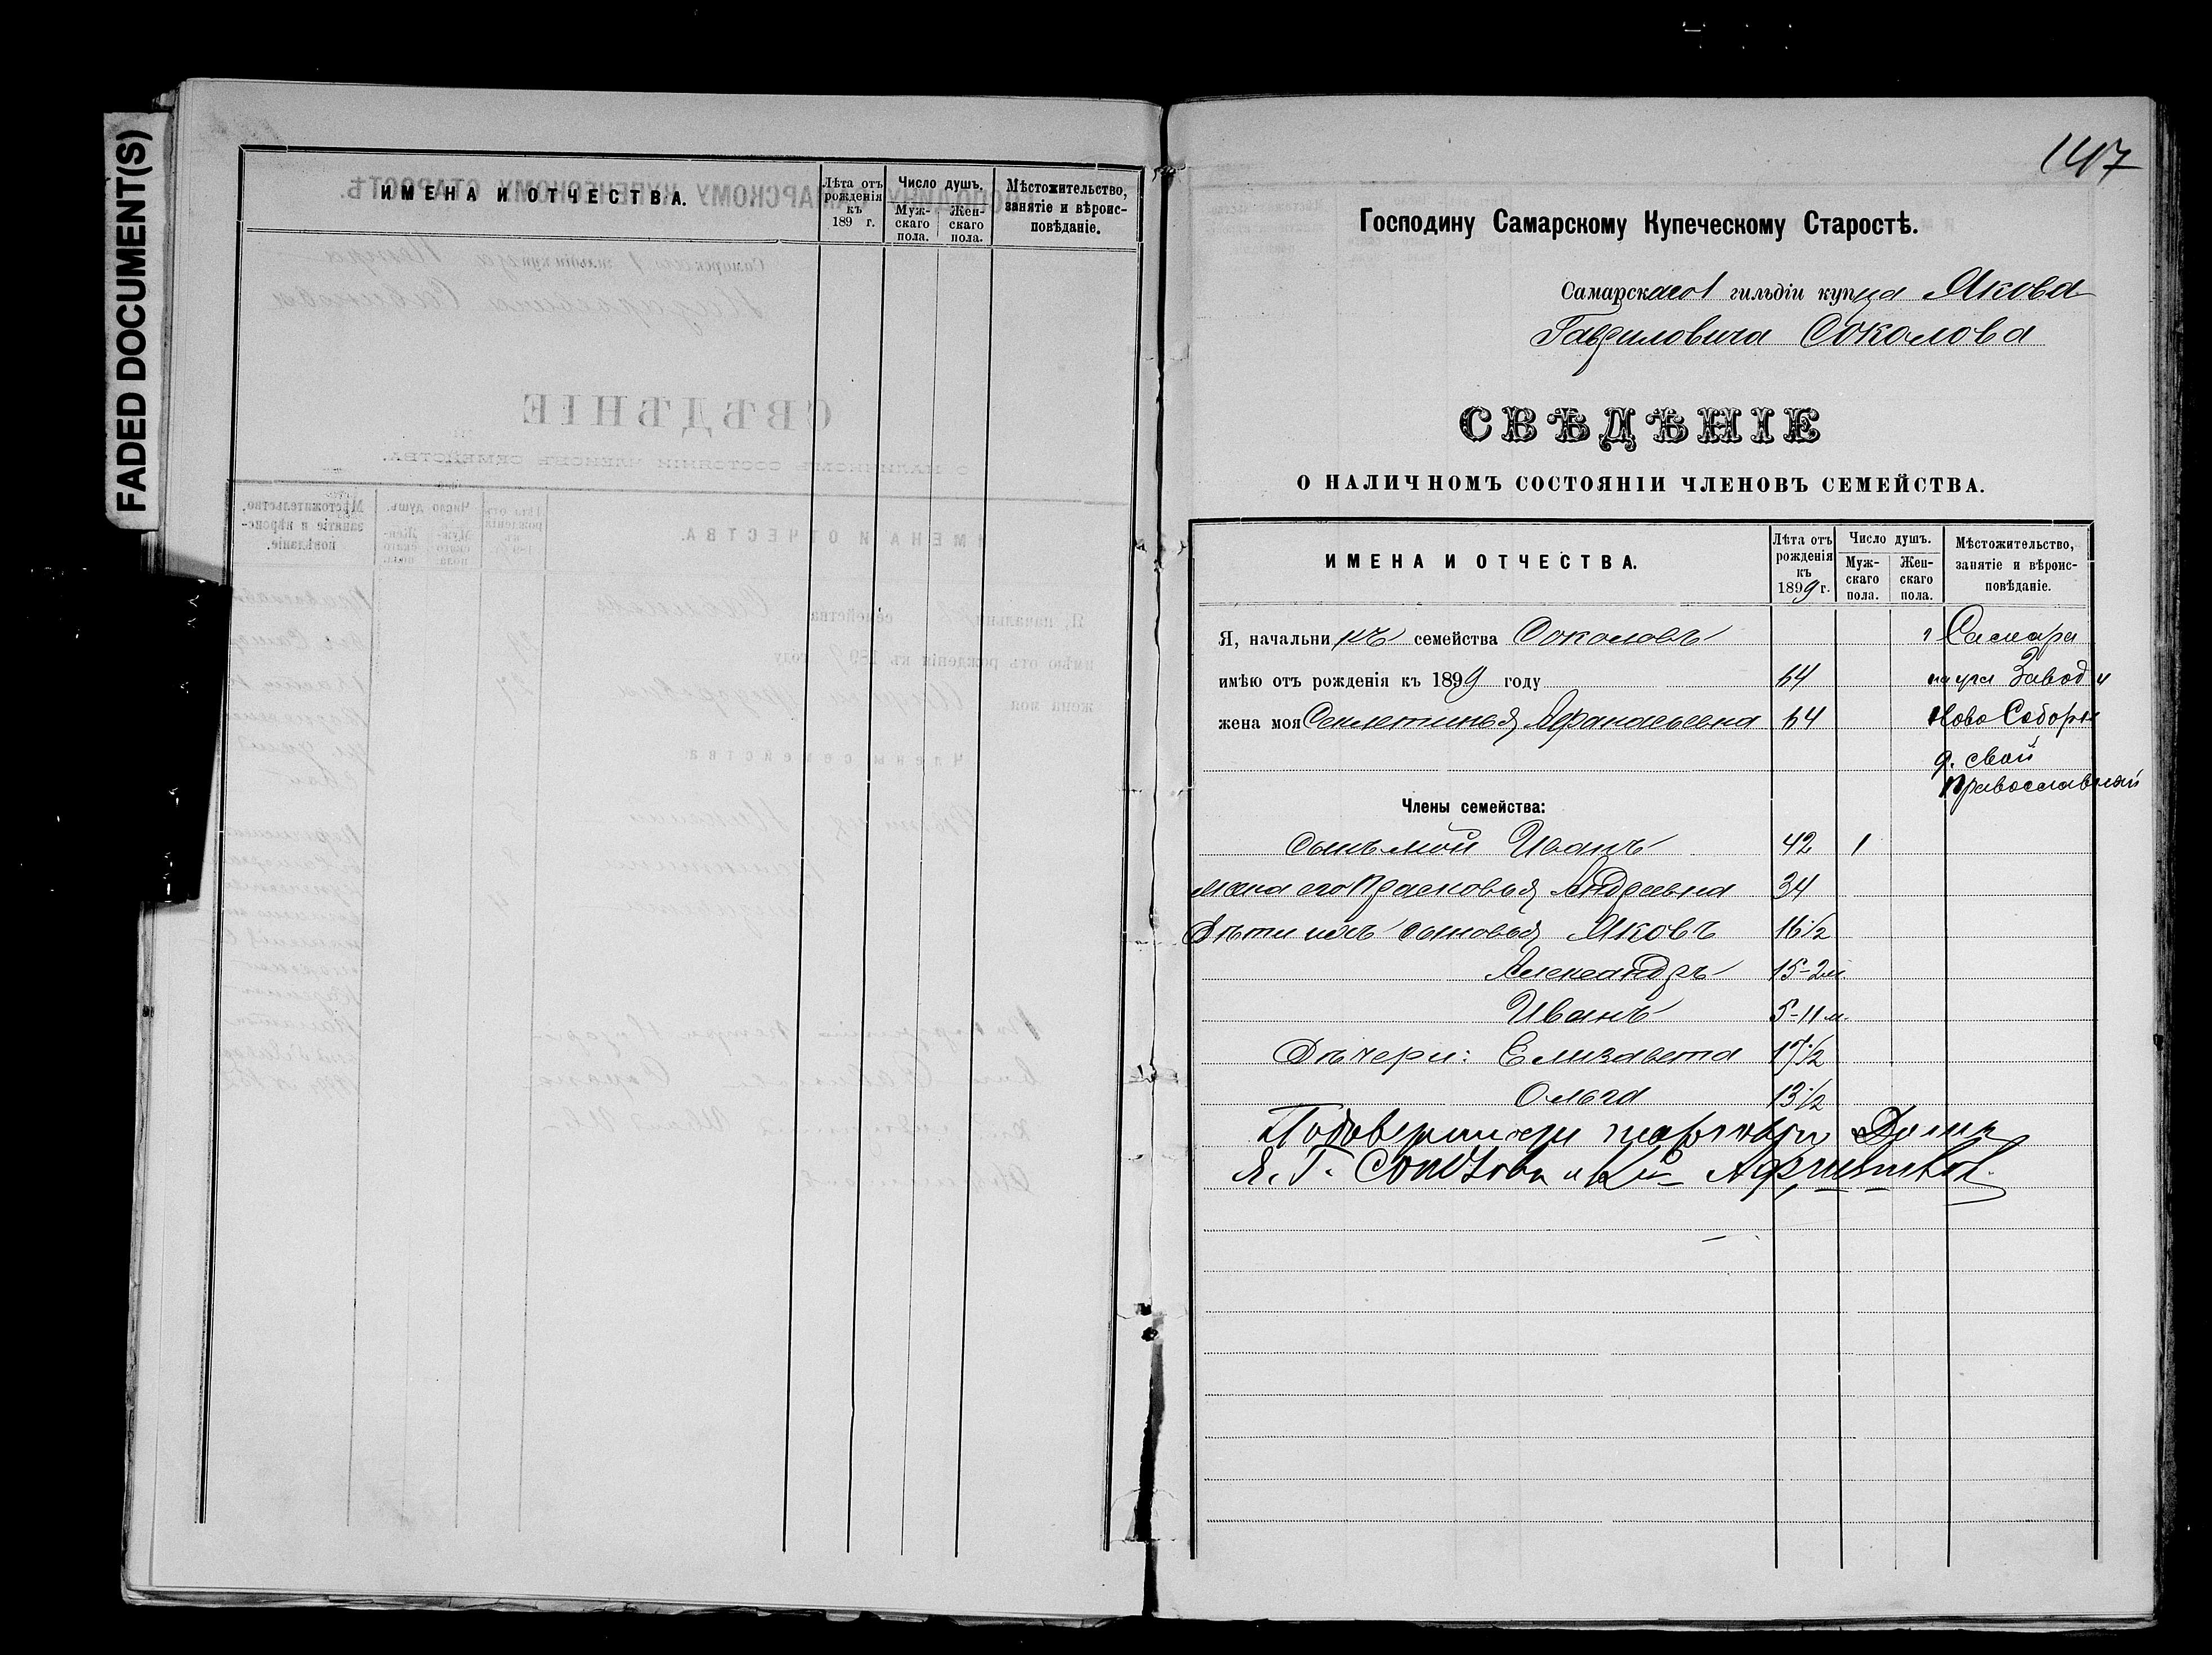 FADED DOCUMENT(S)
ИМЕНА И ОТЧЕСТВА.
Лѣта отъ рожденія къ 189 г.
Число душъ.
Мужскаго пола.
Женскаго пола.
Мѣстожительство, занятіе и вѣроисповѣданіе.
147
Господину Самарскому Купеческому Старостѣ.
Самарскаго 1 гильдіи купца Якова
Гавриловича Соколова
СВѢДѢНІЕ
О НАЛИЧНОМЪ СОСТОЯНІИ ЧЛЕНОВЪ СЕМЕЙСТВА.
ИМЕНА И ОТЧЕСТВА.
Лѣта отъ рожденія къ 1899 г.
Число душъ.
Мужскаго пола.
Женскаго пола.
Мѣстожительство, занятіе и вѣроисповѣданіе.
Я, начальникъ семейства Соколовъ г Самара
имѣю отъ рожденія къ 1899 году 64 на угл Завод и
жена моя Афанасьевна 64 Ново Соборн
д. свой
Православный
Члены семейства:
сынъ мой Иванъ 42 1
жена его Прасковья Андреевна 34
Дѣти ихъ сыновья Яковъ 16 1/2
Александръ 15-2м.
Иванъ 5-11 м.
Дочери: Елизавета 17 1/2
Ольга 13 1/2
Дома
Я. Г. Соколова и Ко